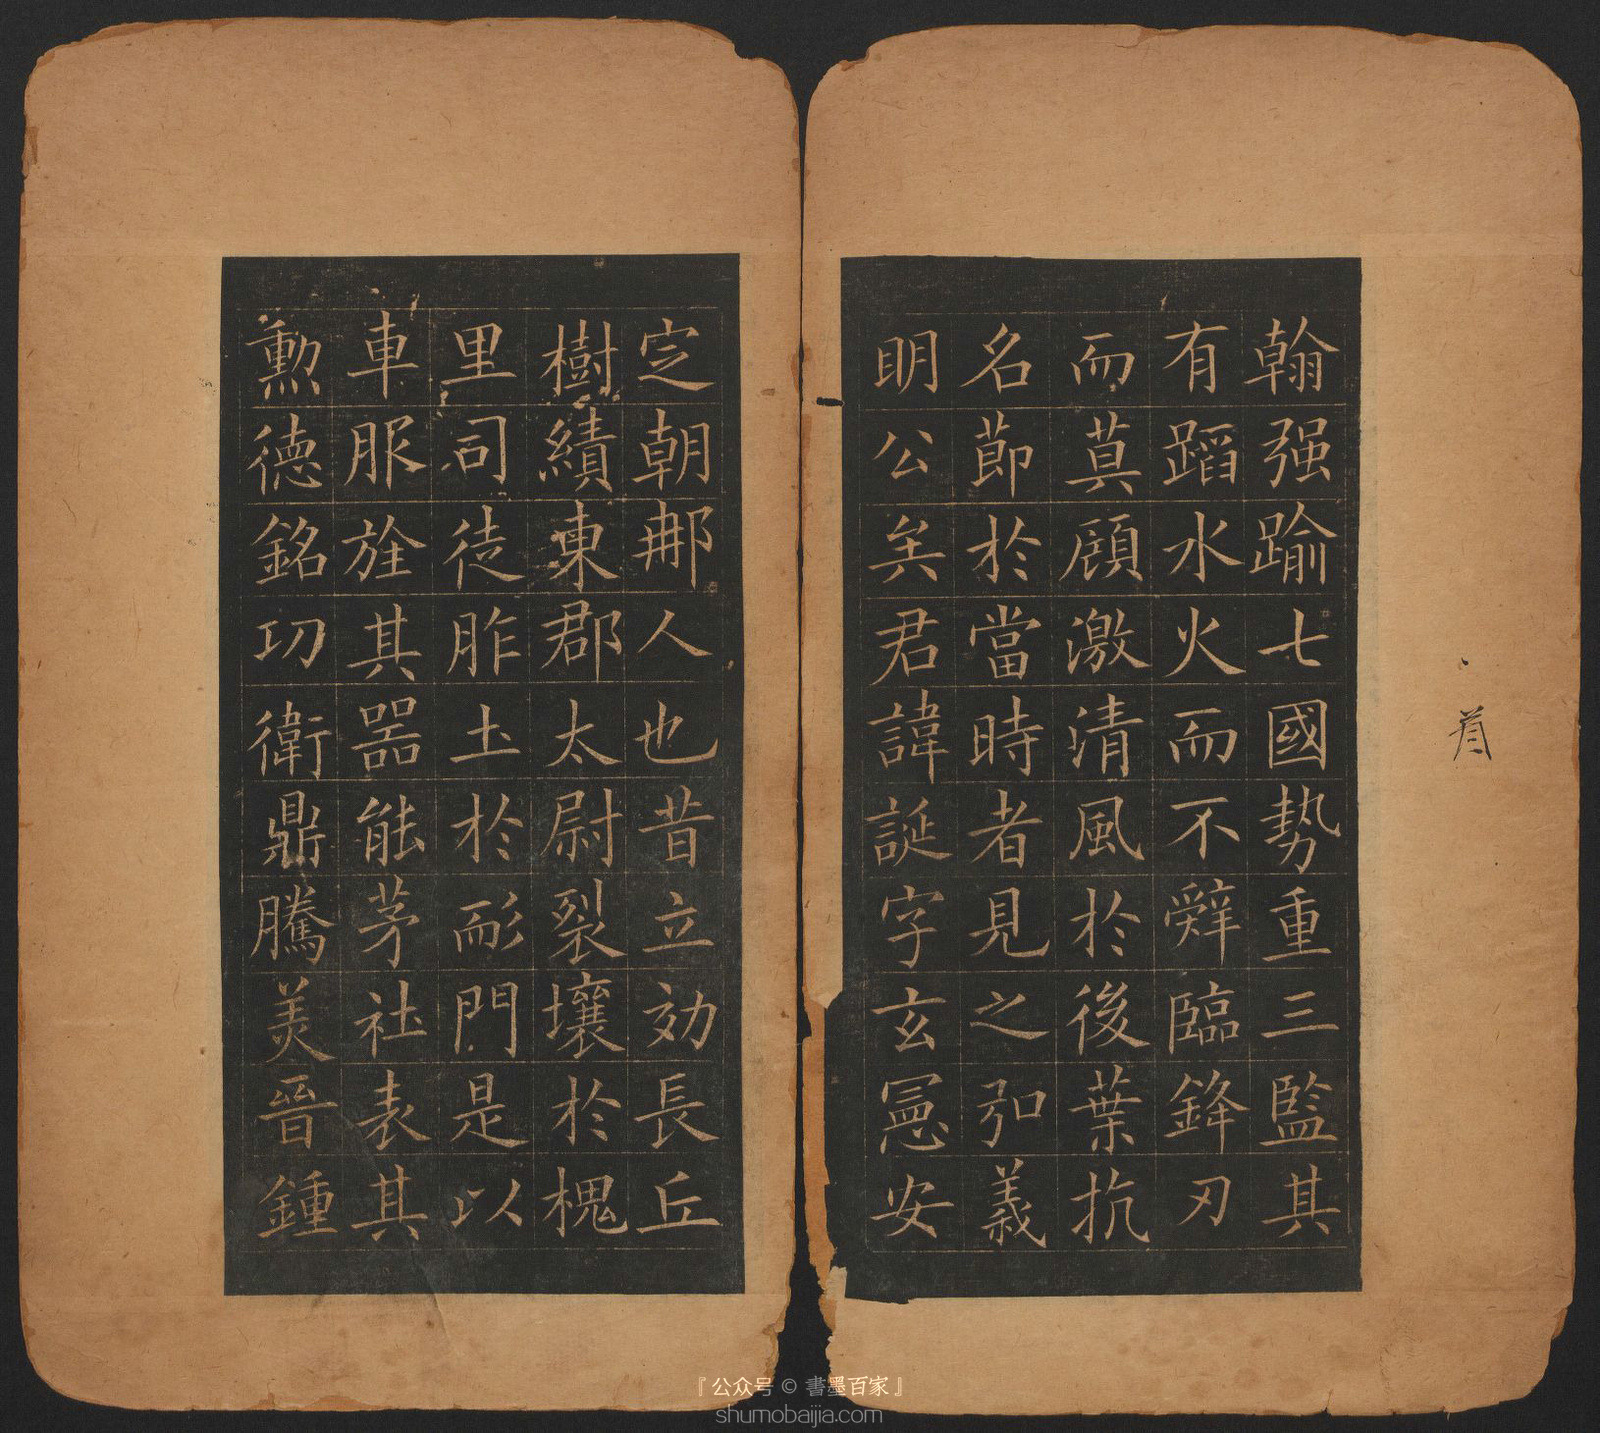 翰强踰七國勢重三監其
有蹈水火而不辭臨鋒刃
而莫顧激清風於後葉抗
名節於當時者見之弘義
明公矣君諱誕字玄憲安
定朝那人也昔立効長丘
樹績東郡太尉裂壤於槐
里司徒胙土於耏門是以
車服旌其器能茅社表其
勳德銘功衛鼎騰美晉鍾
『公众号 © 書墨百家』
shumobaijia.com